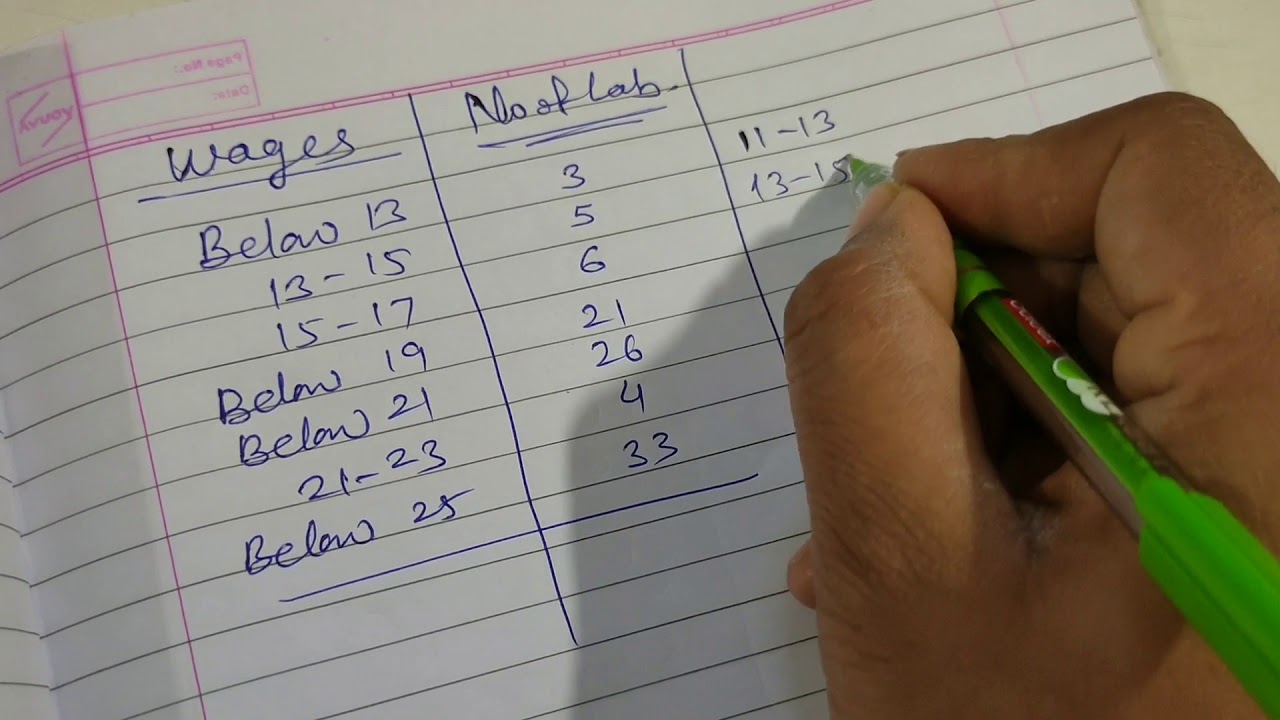 Page No.:
Date:
YOUVA
Wages No of Lab.
Below 13 3 11-13
13-15 5 13-15
15-17 6
Below 19 21
Below 21 26
21-23 4
Below 25 33